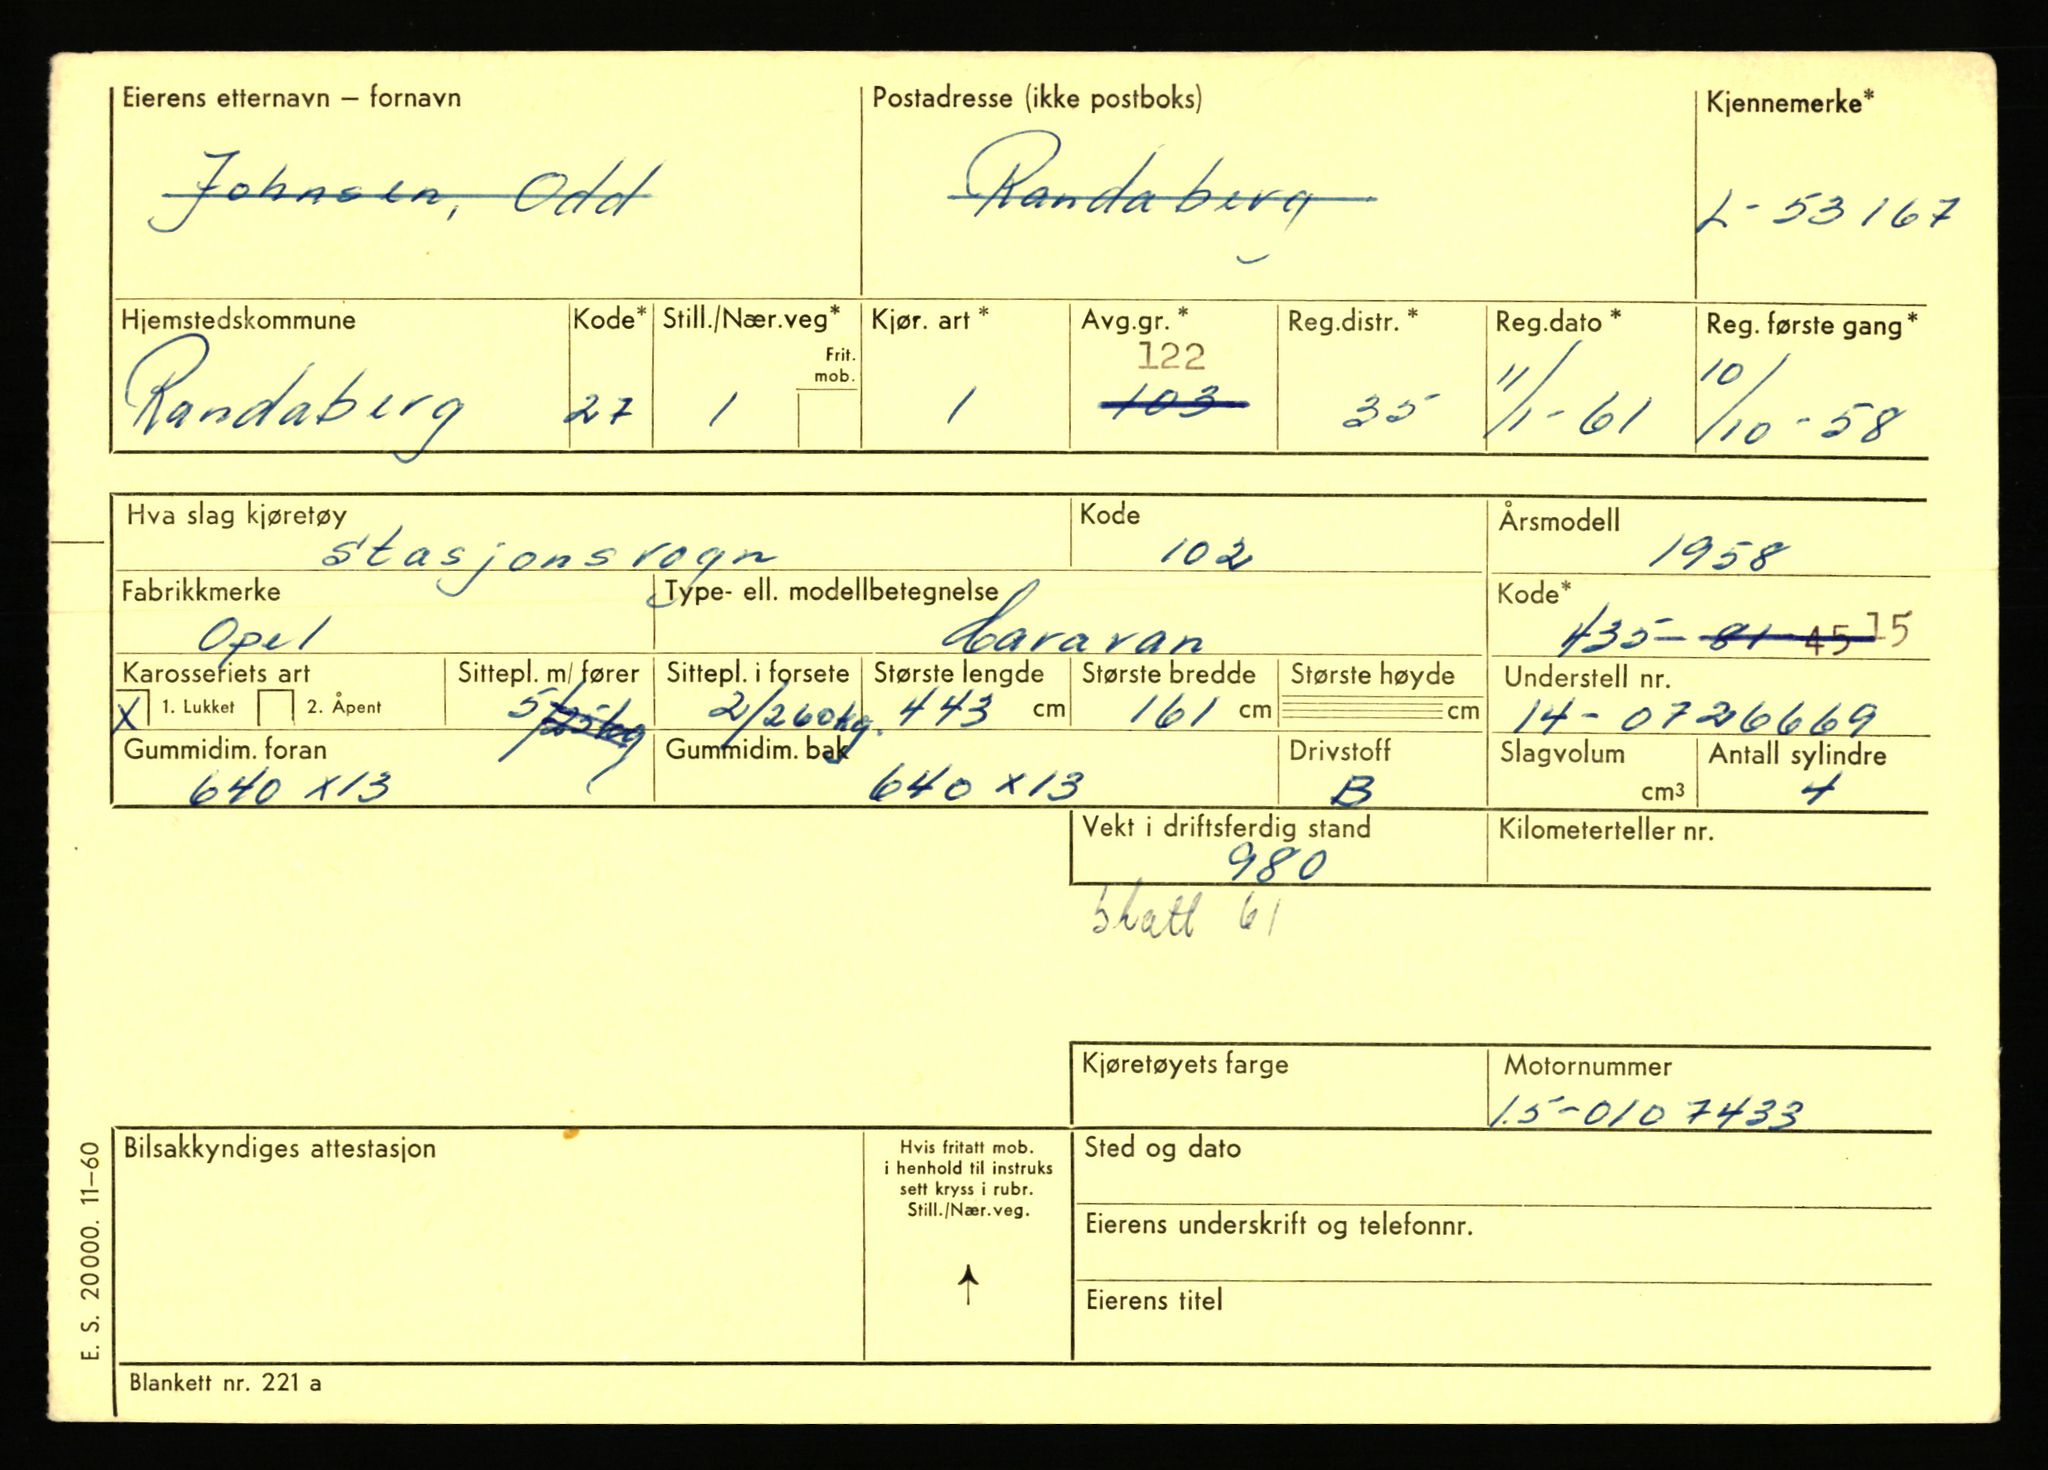 Eierens etternavn – fornavn Postadresse (ikke postboks) Kjennemerke*
Johnsen, Odd Randaberg L-53167
Hjemstedskommune Kode* Still./Nær.veg* Kjør. art * Avg.gr. * Reg.distr. * Reg.dato * Reg. første gang*
Frit. mob. 122
Randaberg 27 1 1 103 35 11/1-61 10/10-58
Hva slag kjøretøy Kode Årsmodell
Stasjonsvogn 102 1958
Fabrikkmerke Type- ell. modellbetegnelse Kode*
Opel Caravan 435-81-45 15
Karosseriets art Sittepl. m/ fører Sittepl. i forsete Største lengde Største bredde Største høyde Understell nr.
X 1. Lukket 2. Åpent 5/ 2/260 kg. 443 cm 161 cm cm 14-0726669
Gummidim. foran Gummidim. bak Drivstoff Slagvolum Antall sylindre
640 x 13 640 x 13 B cm³ 4
Vekt i driftsferdig stand Kilometerteller nr.
980
Skatt 61
Kjøretøyets farge Motornummer
1.5-0107433
Bilsakkyndiges attestasjon Hvis fritatt mob. Sted og dato
i henhold til instruks
sett kryss i rubr.
Still./Nær.veg.
↑
Eierens underskrift og telefonnr.
Eierens titel
E. S. 20000. 11–60
Blankett nr. 221 a